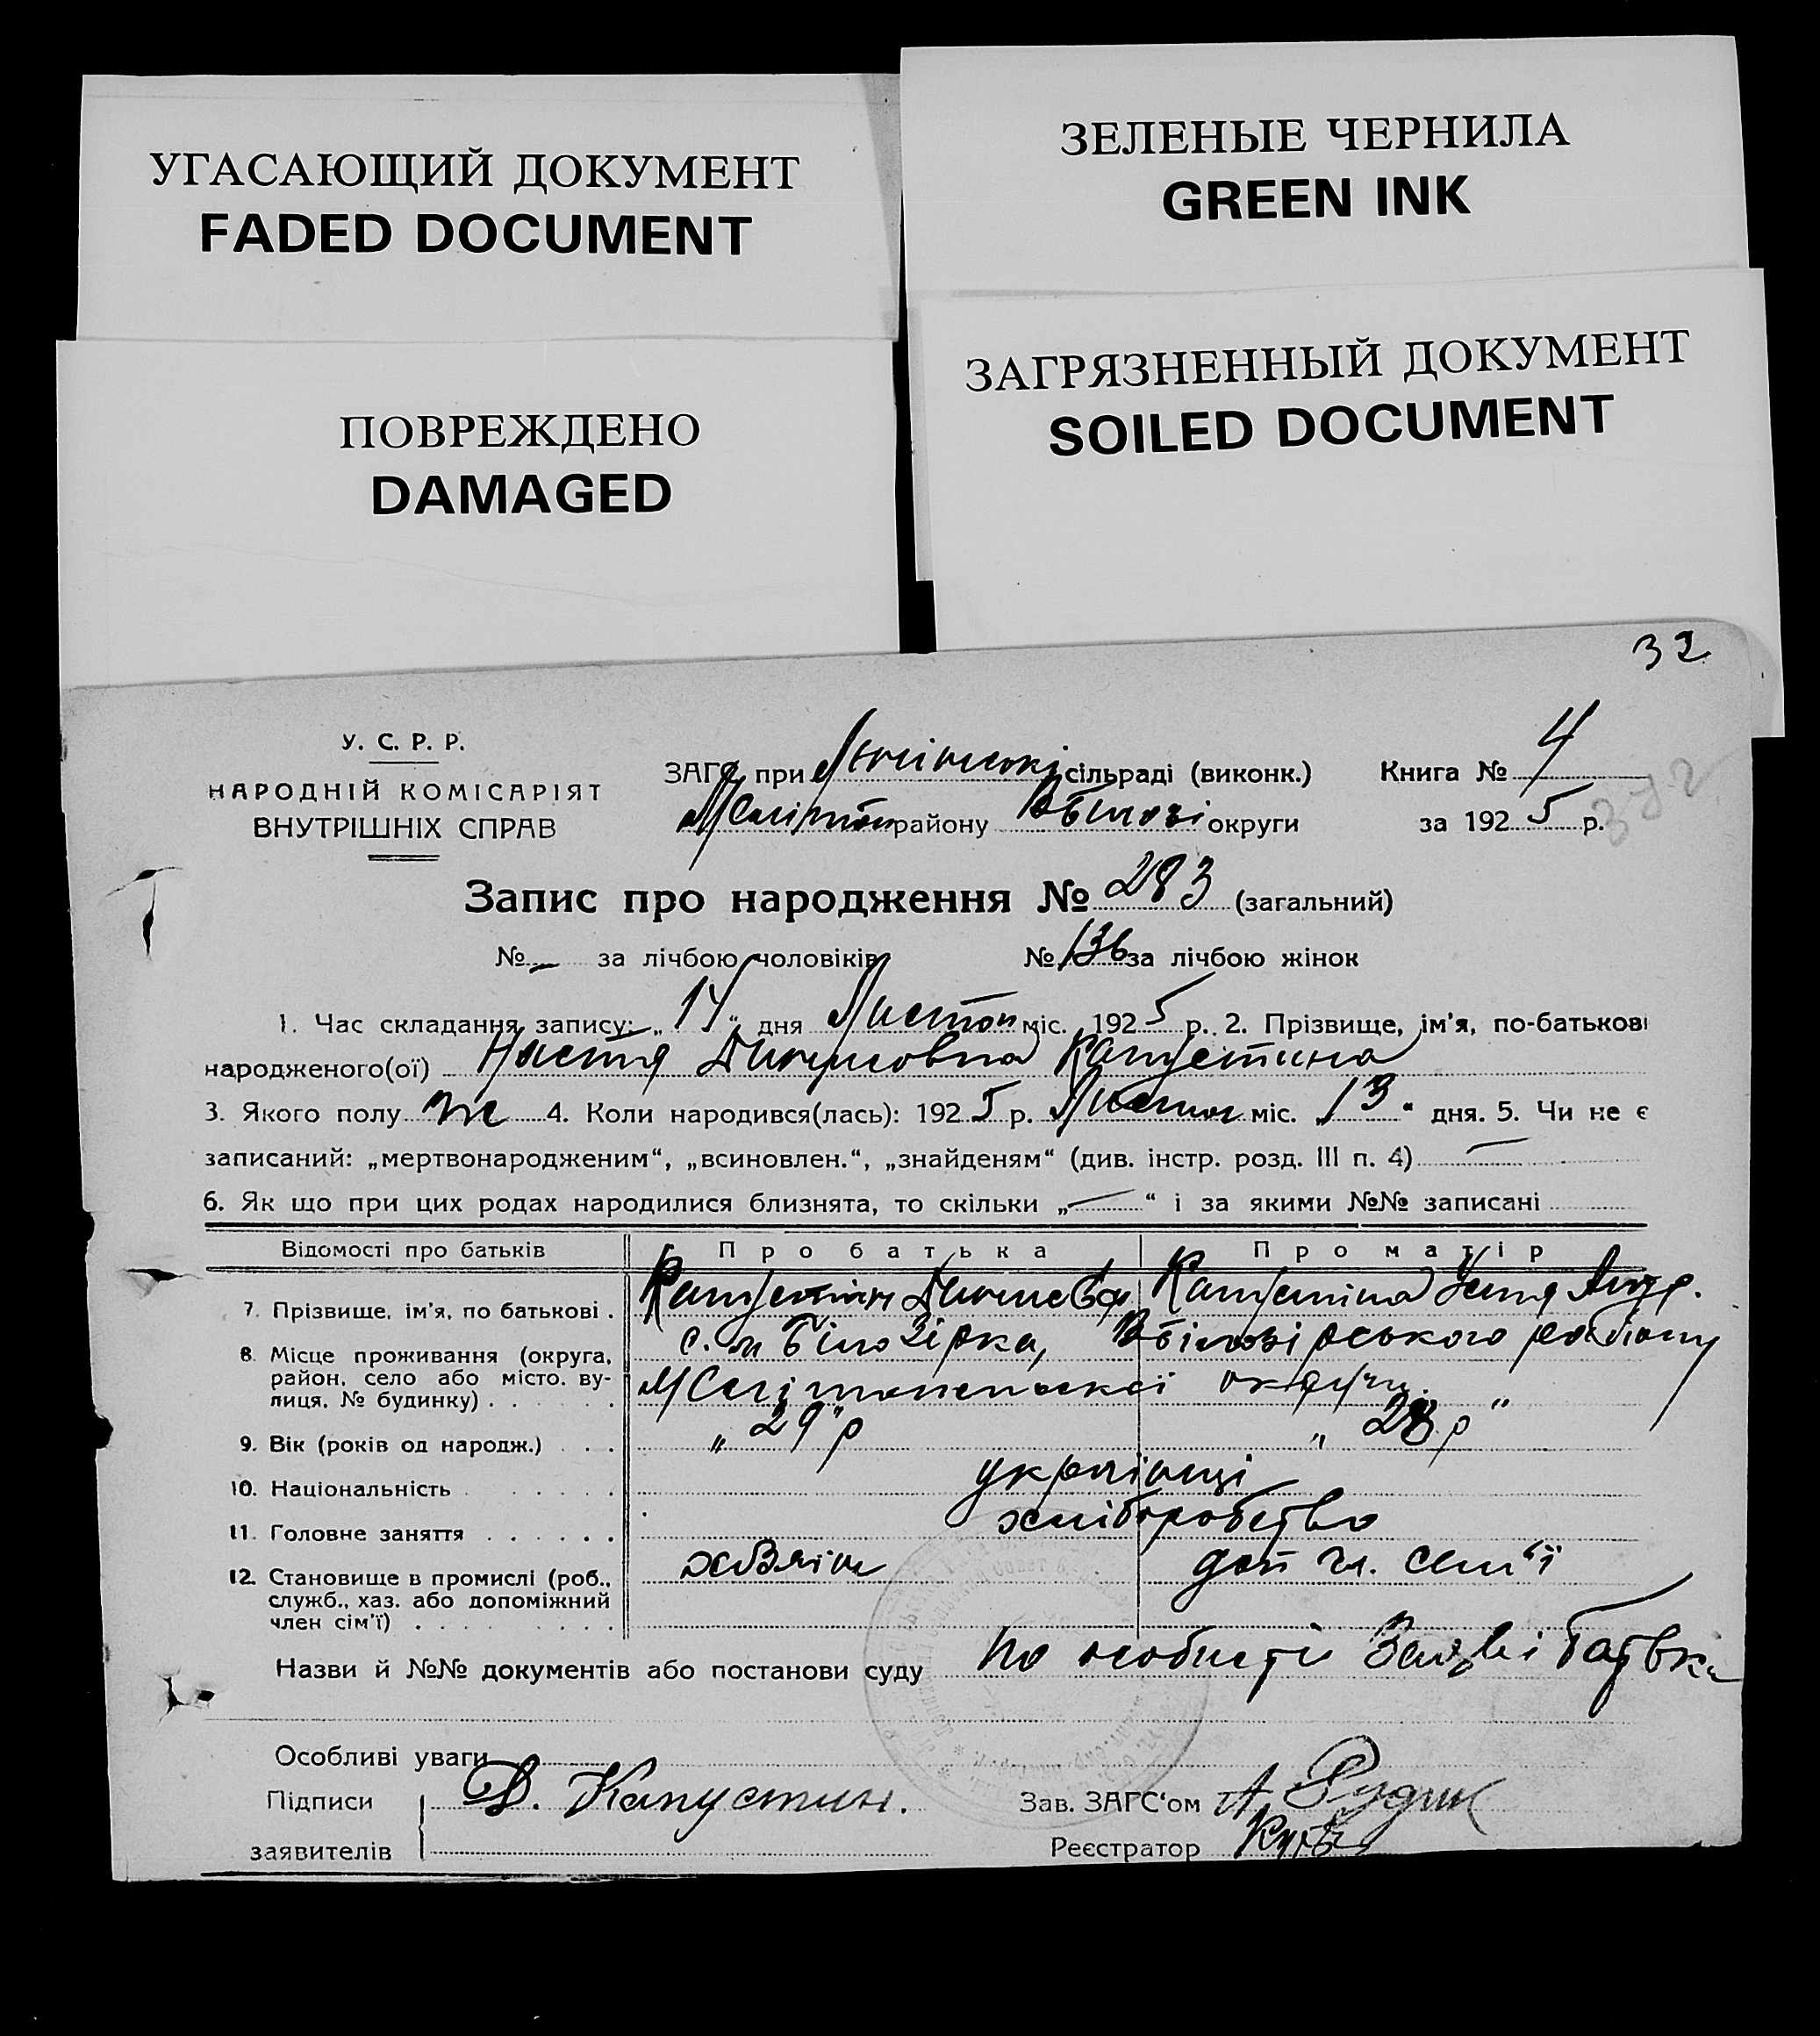 УГАСАЮЩИЙ ДОКУМЕНТ
FADED DOCUMENT
ЗЕЛЕНЫЕ ЧЕРНИЛА
GREEN INK
ПОВРЕЖДЕНО
DAMAGED
ЗАГРЯЗНЕННЫЙ ДОКУМЕНТ
SOILED DOCUMENT
32
У. С. Р. Р.
НАРОДНІЙ КОМІСАРІЯТ
ВНУТРІШНІХ СПРАВ
ЗАГС при сільраді (виконк.) Книга № 4
району округи за 1925 р.
Запис про народження № 283 (загальний)
№ — за лічбою чоловіків № 136 за лічбою жінок
1. Час складання запису: „14“ дня Листоп міс. 1925 р. 2. Прізвище, ім’я, по-батькові
народженого(ої) Настя Капустина
3. Якого полу ж 4. Коли народився(лась): 1925 р. Листоп міс. „13“ дня. 5. Чи не є
записаний: „мертвонародженим“, „всиновлен.“, „знайденям“ (див. інстр. розд. III п. 4) —
6. Як що при цих родах народилися близнята, то скільки „—“ і за якими №№ записані
Відомості про батьків Про батька Про матір
7. Прізвище, ім’я, по батькові . Капустін Капустіна
8. Місце проживання (округа, с. м Білозірка,
район, село або місто, ву-
лиця, № будинку) . . . . . . округи
9. Вік (років од народж.) . . . „29“ р „28“ р
10. Національність . . . . . . українці
11. Головне заняття . . . . . . хліборобство
12. Становище в промислі (роб., хазяін доп чл. сем‘ї
служб., хаз. або допоміжний
член сім’ї) . . . . . . . . .
Назви й №№ документів або постанови суду по особистій заяві батька
Особливі уваги
Підписи Д. Капустин. Зав. ЗАГС‘ом А.
заявителів Реєстратор